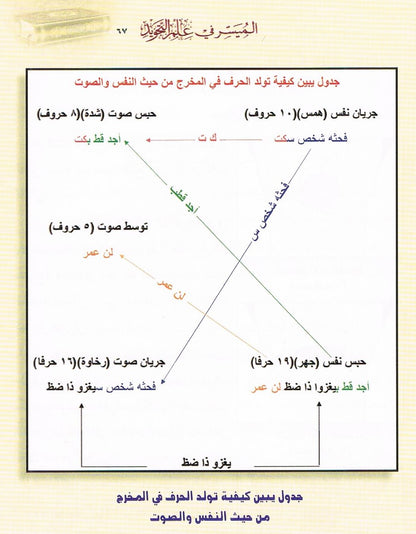 الميسر في علم التجويد
٦٧
جدول يبين كيفية تولد الحرف في المخرج من حيث النفس والصوت
جريان نفس (همس)(١٠ حروف)
حبس صوت (شدة)(٨ حروف)
فحثه شخص سكت
ك ت
أجد قط بكت
فحثه شخص س
أجد قطب
توسط صوت (٥ حروف)
لن عمر
لن عمر
حبس نفس (جهر)(١٩ حرفا)
جريان صوت (رخاوة)(١٦ حرفا)
أجد قط بيغزوا ذا ضظ لن عمر
فحثه شخص سيغزو ذا ضظ
يغزو ذا ضظ
جدول يبين كيفية تولد الحرف في المخرج
من حيث النفس والصوت